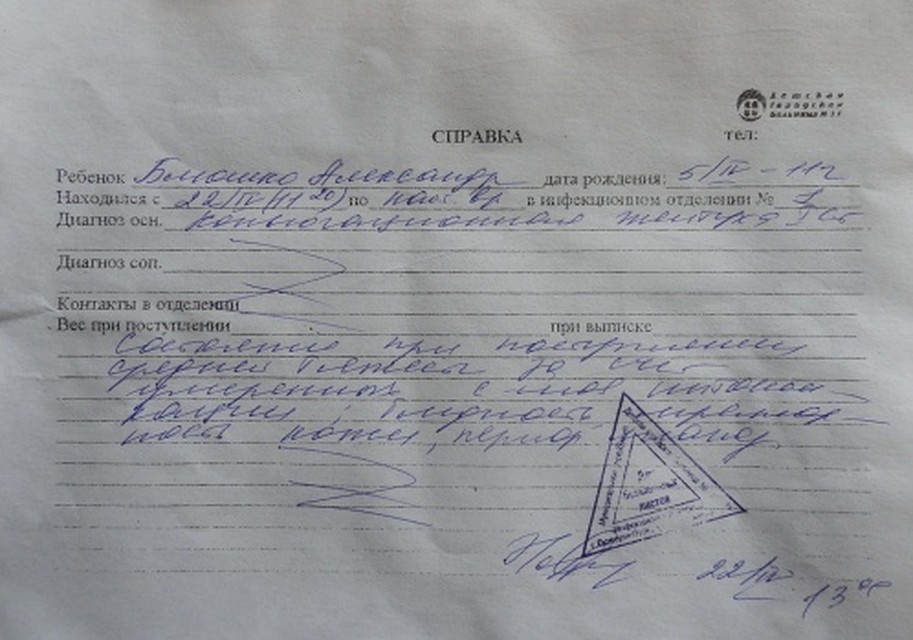 Детская
Городская
Больница №
СПРАВКА
тел:
Ребенок Александр дата рождения: 5/IV - 11 г
Находился с 22/IV (11 20) по наст. вр в инфекционном отделении № 1
Диагноз осн. Конъюгационная желтуха
Диагноз соп.
Контакты в отделении
Вес при поступлении при выписке
Состояние при поступлении
средней тяжести за счет
умеренных с-мов интокси
кации, бледность мрамор
ность кожи, период.
больничных
листов
22/IV
13 00